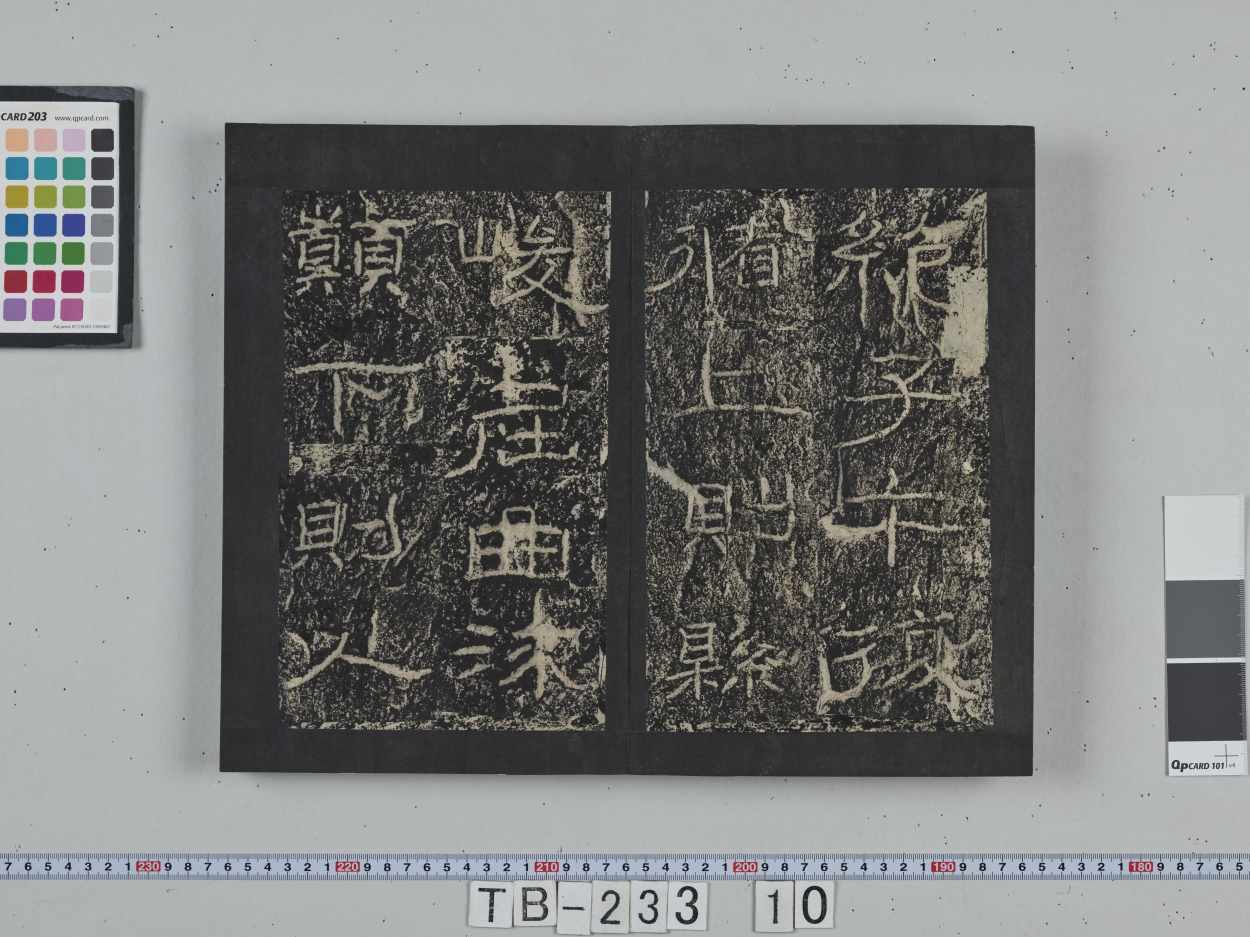 絶子午復
循上則縣
峻屈曲流
顛下則入
CARD 203 www.qpcard.com
QpCARD 101 v4
7 6 5 4 3 2 1 230 9 8 7 6 5 4 3 2 1 220 9 8 7 6 5 4 3 2 1 210 9 8 7 6 5 4 3 2 1 200 9 8 7 6 5 4 3 2 1 190 9 8 7 6 5 4 3 2 1 180 9 8 7 6 5
TB-233 10